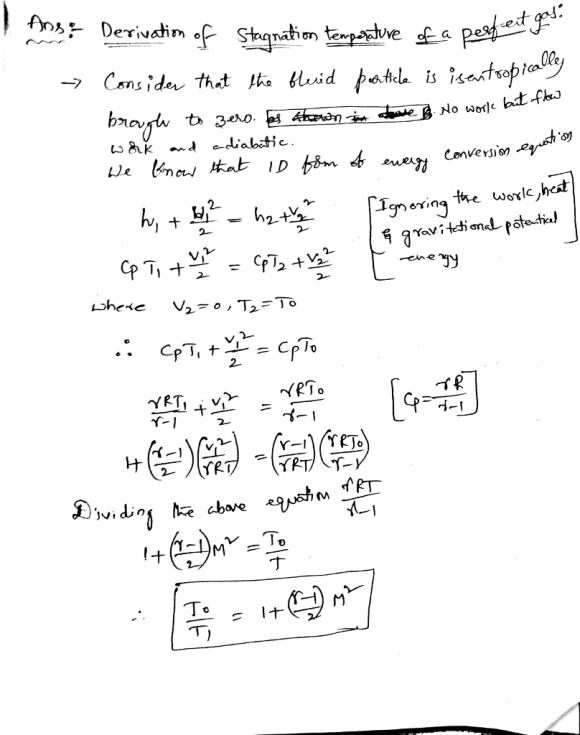 Ans:- Derivation of Stagnation temperature of a perfect gas:
→ Consider that the fluid particle is isentropically
brough to zero. No work but flow
work and adiabatic.
We know that 1D form of energy conversion equation
h₁ + V₁²/2 = h₂ + V₂²/2 [Ignoring the work, heat
& gravitational potential
energy]
CpT₁ + V₁²/2 = CpT₂ + V₂²/2
where V₂ = 0, T₂ = T₀
∴ CpT₁ + V₁²/2 = CpT₀
γRT₁/(γ-1) + V₁²/2 = γRT₀/(γ-1) [Cp = γR/(γ-1)]
1+((γ-1)/2)(V₁²/γRT) = ((γ-1)/γRT)(γRT₀/(γ-1))
Dividing the above equation γRT/(γ-1)
1+((γ-1)/2)M² = T₀/T
∴ T₀/T₁ = 1+((γ-1)/2)M²